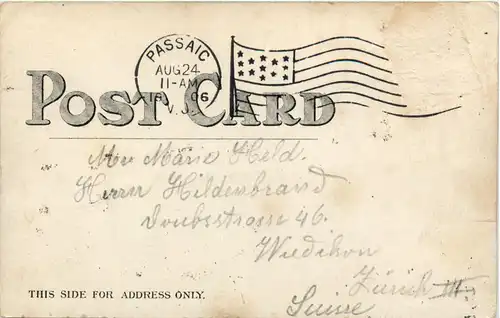 PASSAIC
AUG 24
11-AM
06
N.J.
POST CARD
Marie Held.
Herrn Hildenbrand
Doubsstrasse 46.
Wiedikon
Zürich III
Suisse
THIS SIDE FOR ADDRESS ONLY.